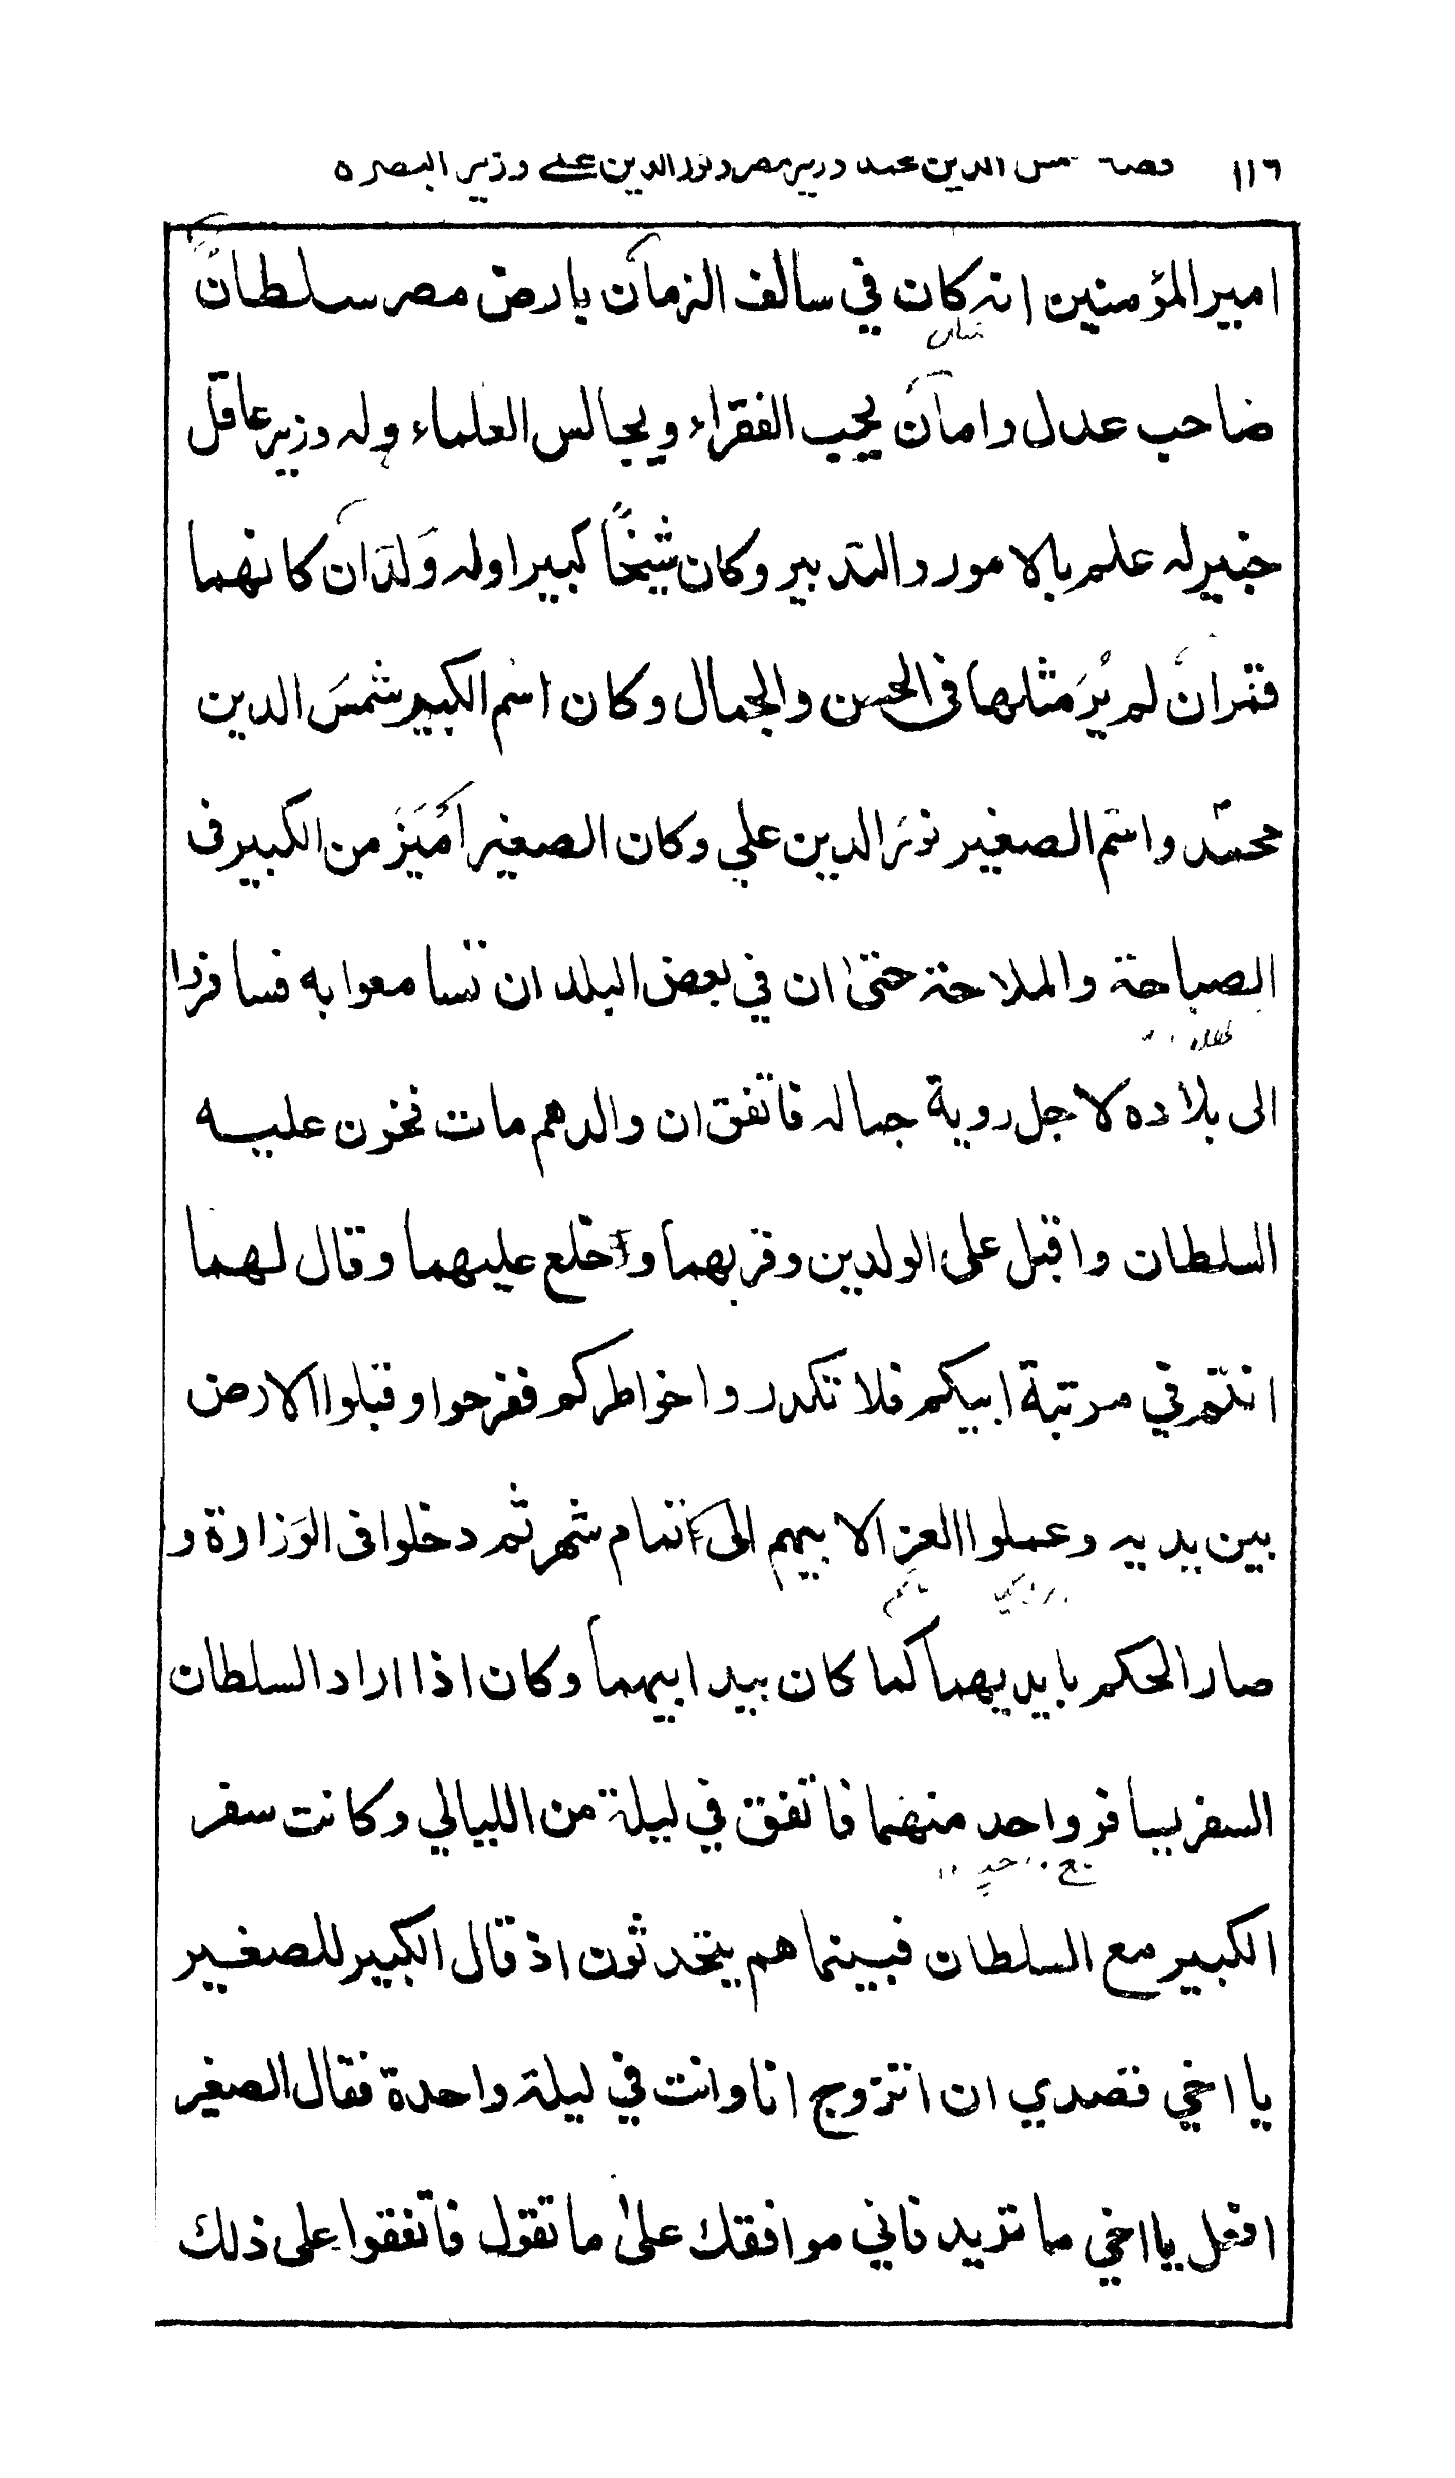 ١١٦ قصة شمس الدين محمد وزير مصر ونور الدين علي وزير البصره
امير المؤمنين انه كان في سالف الزمان بارض مصر سلطان
صاحب عدل وامان يحب الفقراء ويجالس العلماء وله وزير عاقل
خبير له علم بالامور والتدبير وكان شيخًا كبيرا وله وَلدَان كانهما
قمران لم يُرَ مثلهما في الحسن والجمال وكان اسم الكبير شمسَ الدين
محمّد واسم الصغير نورَ الدين علي وكان الصغير اَميَز من الكبير في
الصباحة والملاحة حتىٰ ان في بعض البلدان تسامعوا به فسافروا
الى بلاده لاجل روية جماله فاتفق ان والدهم مات فحزن عليه
السلطان واقبل على الولدين وقربهما واخلع عليهما وقال لهما
انتم في مرتبة ابيكم فلا تكدروا خواطركم ففرحوا وقبلوا الارض
بين يديه وعملوا العزا لابيهم الى تمام شهر ثم دخلوا في الوَزارة و
صار الحكم بايديهما كما كان بيد ابيهما وكان اذا اراد السلطان
السفر يسافر واحد منهما فاتفق في ليلة من الليالي وكانت سفر
الكبير مع السلطان فبينما هم يتحدثون اذ قال الكبير للصغير
يا اخي قصدي ان اتزوج انا وانت في ليلة واحدة فقال الصغير
افعل يا اخي ما تريد فاني موافقك علىٰ ما تقول فاتفقوا على ذلك